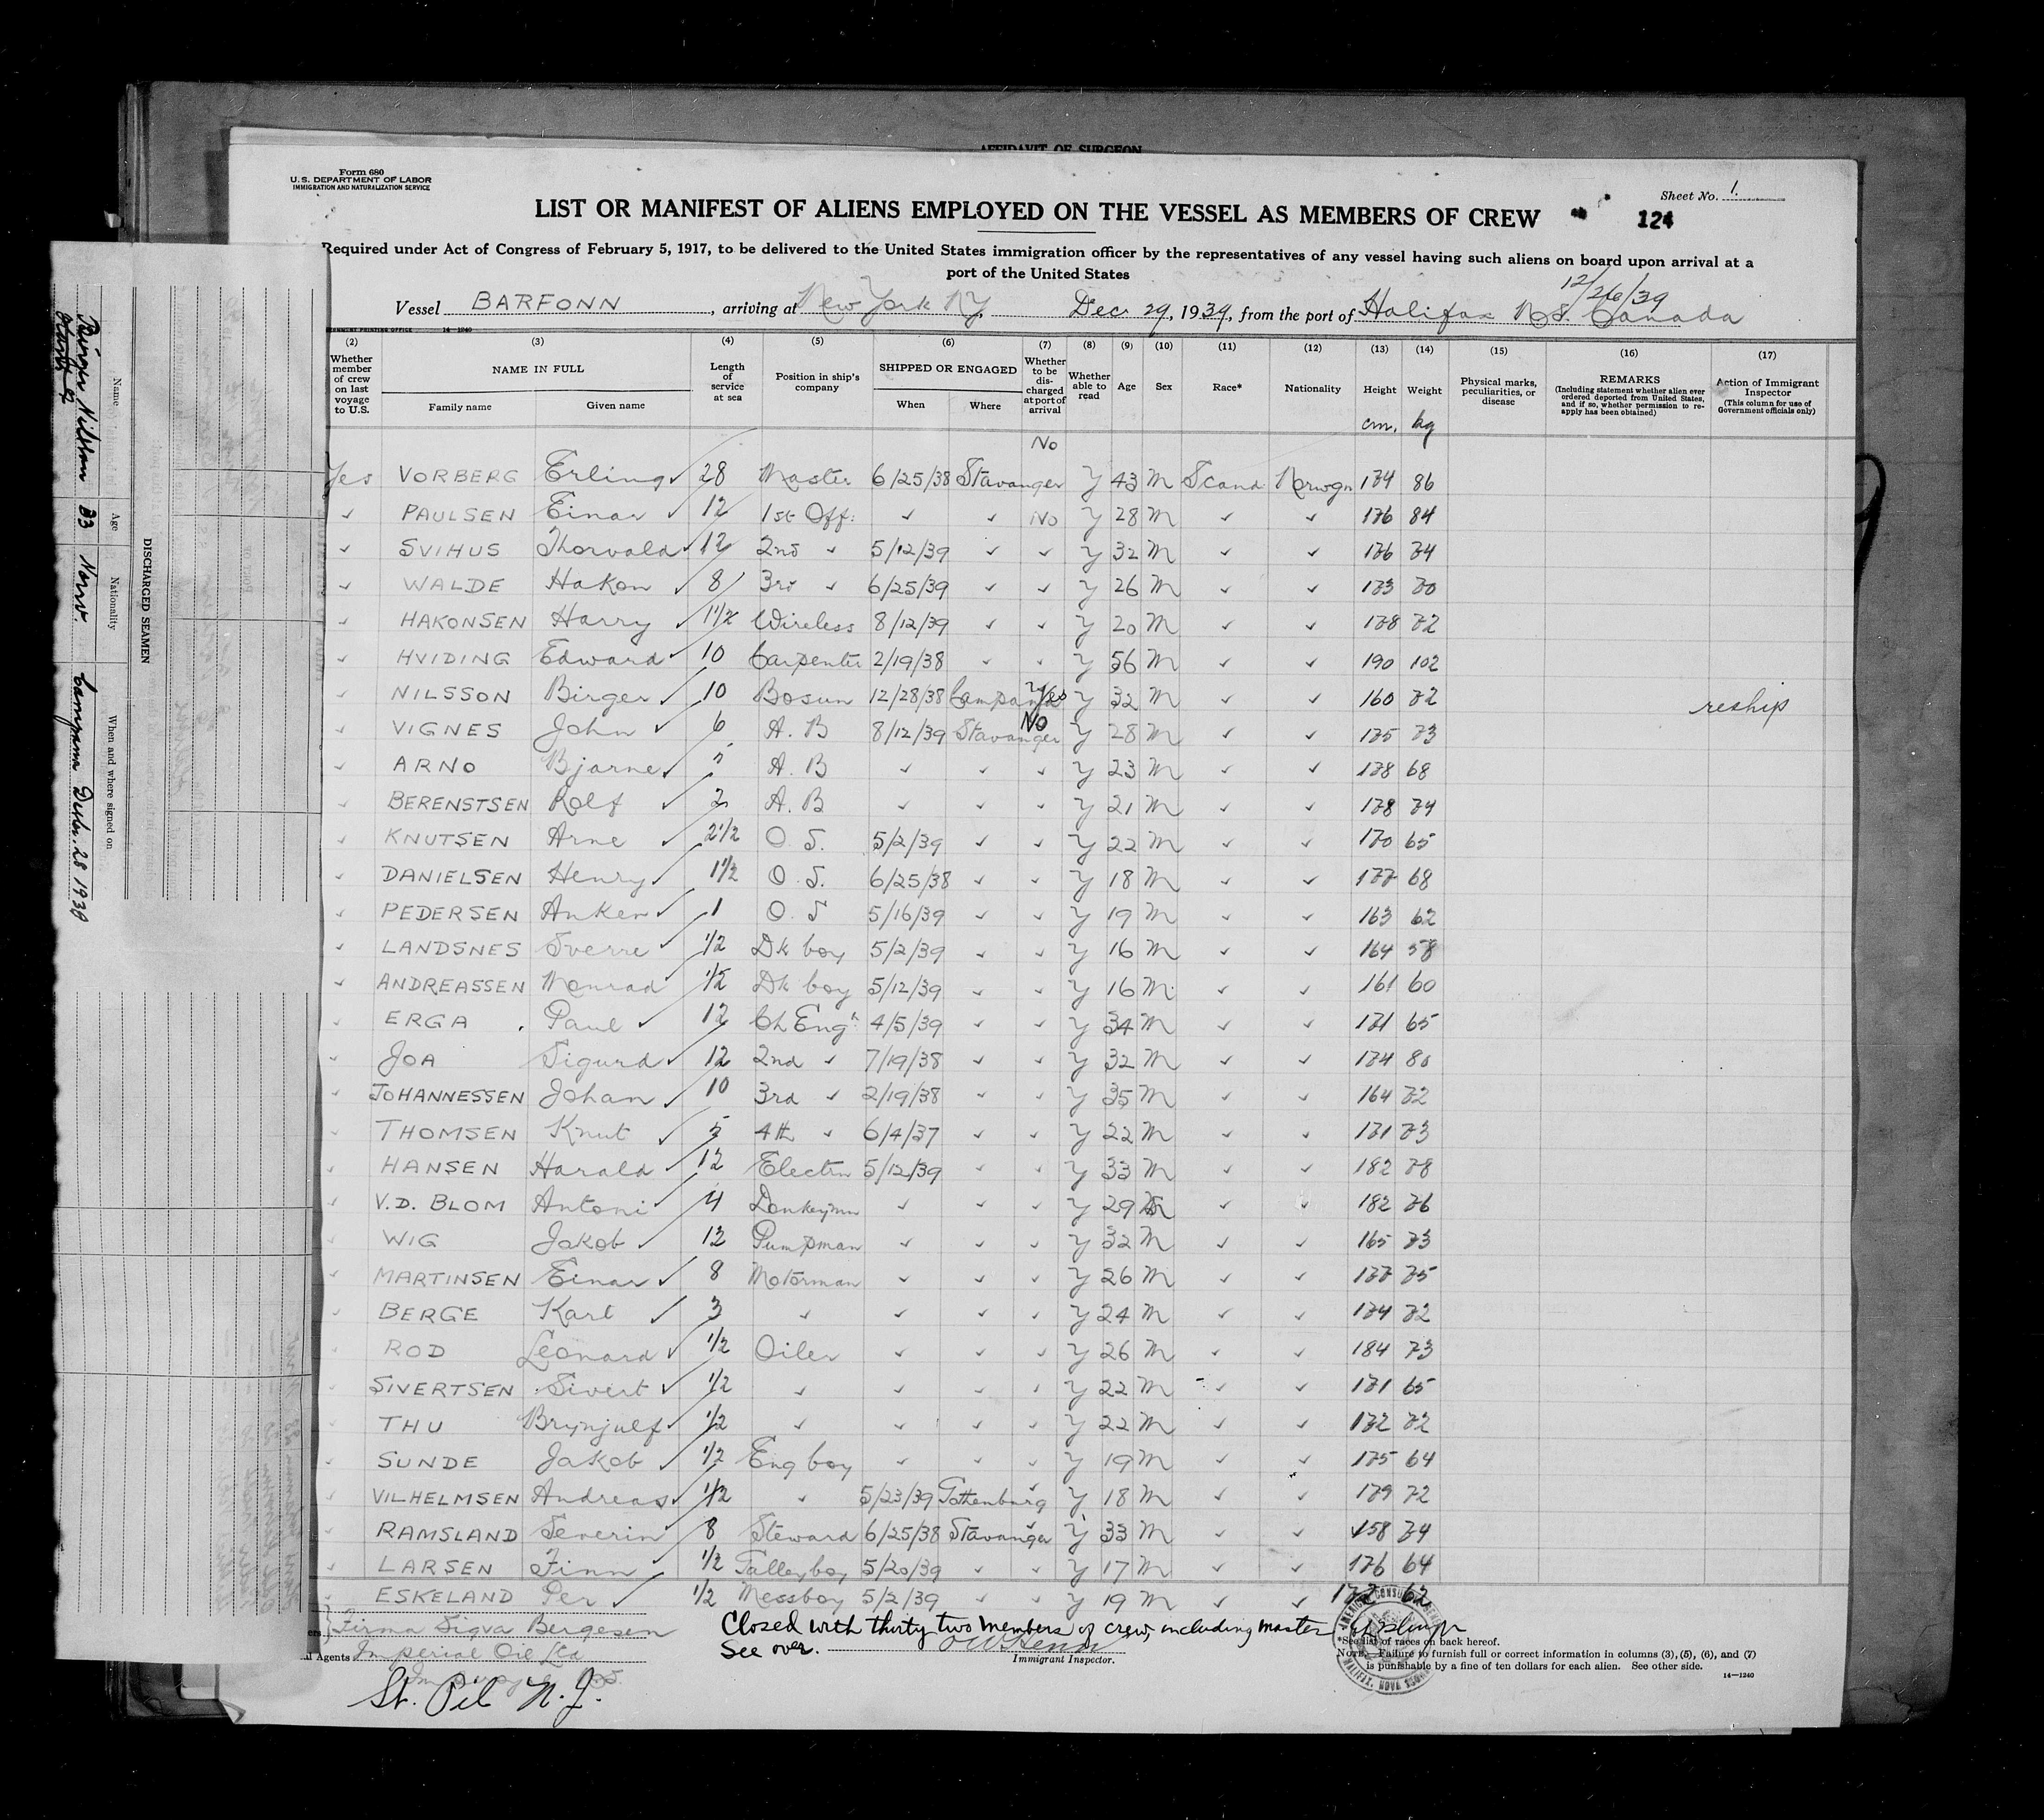 AFFIDAVIT OF SURGEON
Form 680
U.S. DEPARTMENT OF LABOR
IMMIGRATION AND NATURALIZATION SERVICE
Sheet No. 1.
LIST OR MANIFEST OF ALIENS EMPLOYED ON THE VESSEL AS MEMBERS OF CREW
124
Required under Act of Congress of February 5, 1917, to be delivered to the United States immigration officer by the representatives of any vessel having such aliens on board upon arrival at a
port of the United States
12/26/39
Vessel BARFONN, arriving at New York N.Y., Dec. 29, 1939, from the port of Halifax N.S. Canada
14—1240
(2) (3) (4) (5) (6) (7) (8) (9) (10) (11) (12) (13) (14) (15) (16) (17)
Whether member of crew on last voyage to U.S. NAME IN FULL Family name Given name Length of service at sea Position in ship's company SHIPPED OR ENGAGED When Where Whether to be discharged at port of arrival Whether able to read Age Sex Race* Nationality Height Weight Physical marks, peculiarities, or disease REMARKS (Including statement whether alien ever ordered deported from United States, and if so, whether permission to re-apply has been obtained) Action of Immigrant Inspector (This column for use of Government officials only)
cm. kg
No
Yes VORBERG Erling ✓ 28 Master 6/25/38 Stavanger Y 43 M Scand Norwgn 174 86
✓ PAULSEN Einar ✓ 12 1st Off. ✓ ✓ No Y 28 M ✓ ✓ 176 84
✓ SVIHUS Thorvald ✓ 12 2nd ✓ 5/12/39 ✓ ✓ Y 32 M ✓ ✓ 176 74
✓ WALDE Hakon ✓ 8 3rd ✓ 6/25/39 ✓ ✓ Y 26 M ✓ ✓ 173 70
✓ HAKONSEN Harry ✓ 1 1/2 Wireless 8/12/39 ✓ ✓ Y 20 M ✓ ✓ 178 72
✓ HVIDING Edward ✓ 10 Carpenter 2/19/38 ✓ ✓ Y 56 M ✓ ✓ 190 102
✓ NILSSON Birger ✓ 10 Bosun 12/28/38 Campana Yes Y 32 M ✓ ✓ 160 72 reship
✓ VIGNES John ✓ 6 A.B 8/12/39 Stavanger No Y 28 M ✓ ✓ 175 73
✓ ARNO Bjarne ✓ 5 A.B ✓ ✓ ✓ Y 23 M ✓ ✓ 178 68
✓ BERENSTSEN Rolf ✓ 2 A.B ✓ ✓ ✓ Y 21 M ✓ ✓ 178 74
✓ KNUTSEN Arne ✓ 2 1/2 O.S. 5/2/39 ✓ ✓ Y 22 M ✓ ✓ 170 65
✓ DANIELSEN Henry ✓ 1 1/2 O.S. 6/25/38 ✓ ✓ Y 18 M ✓ ✓ 177 68
✓ PEDERSEN Anker ✓ 1 O.S 5/16/39 ✓ ✓ Y 19 M ✓ ✓ 163 62
✓ LANDSNES Sverre ✓ 1/2 Dk boy 5/2/39 ✓ ✓ Y 16 M ✓ ✓ 164 58
✓ ANDREASSEN Monrad ✓ 1/2 Dk boy 5/12/39 ✓ ✓ Y 16 M ✓ ✓ 161 60
✓ ERGA Paul ✓ 12 Ch Engr 4/5/39 ✓ ✓ Y 34 M ✓ ✓ 171 65
✓ JOA Sigurd ✓ 12 2nd ✓ 7/19/38 ✓ ✓ Y 32 M ✓ ✓ 174 80
✓ JOHANNESSEN Johan ✓ 10 3rd ✓ 2/19/38 ✓ ✓ Y 35 M ✓ ✓ 164 72
✓ THOMSEN Knut ✓ 5 4th ✓ 6/4/37 ✓ ✓ Y 22 M ✓ ✓ 171 73
✓ HANSEN Harald ✓ 12 Electrn 5/12/39 ✓ ✓ Y 33 M ✓ ✓ 182 78
✓ V.D. BLOM Antoni ✓ 4 Donkeymn ✓ ✓ ✓ Y 29 M ✓ ✓ 182 76
✓ WIG Jakob ✓ 12 Pumpman ✓ ✓ ✓ Y 32 M ✓ ✓ 165 73
✓ MARTINSEN Einar ✓ 8 Motorman ✓ ✓ ✓ Y 26 M ✓ ✓ 177 75
✓ BERGE Karl ✓ 3 ✓ ✓ ✓ ✓ Y 24 M ✓ ✓ 174 72
✓ ROD Leonard ✓ 1/2 Oiler ✓ ✓ ✓ Y 26 M ✓ ✓ 184 73
✓ SIVERTSEN Sivert ✓ 1/2 ✓ ✓ ✓ ✓ Y 22 M ✓ ✓ 171 65
✓ THU Brynjulf ✓ 1/2 ✓ ✓ ✓ ✓ Y 22 M ✓ ✓ 172 72
✓ SUNDE Jakob ✓ 1/2 Eng boy ✓ ✓ ✓ Y 19 M ✓ ✓ 175 64
✓ VILHELMSEN Andreas ✓ 1/2 ✓ 5/23/39 Gottenburg ✓ Y 18 M ✓ ✓ 179 72
✓ RAMSLAND Severin ✓ 8 Steward 6/25/38 Stavanger ✓ Y 33 M ✓ ✓ 158 74
✓ LARSEN Finn ✓ 1/2 Galleyboy 5/20/39 ✓ ✓ Y 17 M ✓ ✓ 176 64
✓ ESKELAND Per ✓ 1/2 Messboy 5/2/39 ✓ ✓ Y 19 M ✓ ✓ 62
Firma Sigva Bergesen
Closed with thirty two members of crew, including master
See over.
Immigrant Inspector.
Agents Imperial Oil Ltd
St. Oil N.J.
AMERICAN CONSULATE GENERAL
HALIFAX, NOVA SCOTIA
*See list of races on back hereof.
NOTE.—Failure to furnish full or correct information in columns (3), (5), (6), and (7)
is punishable by a fine of ten dollars for each alien. See other side.
14—1240
DISCHARGED SEAMEN
Name Age Nationality When and where signed on
Birger Nilsson 33 Norw. Campana Decbr. 28 1938